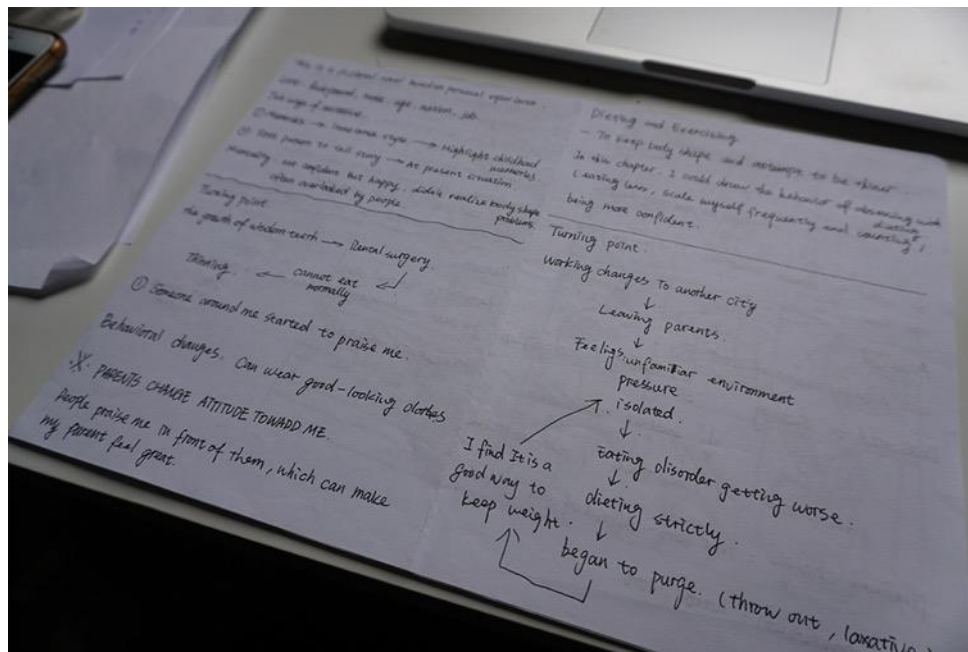 This is a pictorial novel based on personal experience.
name, age, job.
Two ways of narrative.
① Memories → Innocence style → Highlight childhood
memories.
② First person to tell story → At present situation.
Mentality: not confident but happy, didn't realize body shape
problems.
often overlooked by people
Turning point
the growth of wisdom teeth → Dental surgery.
↓
Thinning. ← cannot eat
normally
① Someone around me started to praise me.
Behavioral changes. Can wear good-looking clothes
※ PARENTS CHANGE ATTITUDE TOWADD ME.
People praise me in front of them, which can make
my parent feel great.
Dieting and Exercising
— To keep body shape and attempt to be thinner.
In this chapter, I could draw the behavior of obsessing with
dieting
(eating less, scale myself frequently and counting),
being more confident.
Turning point.
Working changes To another city
↓
Leaving parents.
↓
Feelings: unfamiliar environment
pressure
isolated.
↓
Eating disorder getting worse.
↓
dieting strictly.
↓
began to purge. (throw out, laxative)
I find It is a
good way to
keep weight.